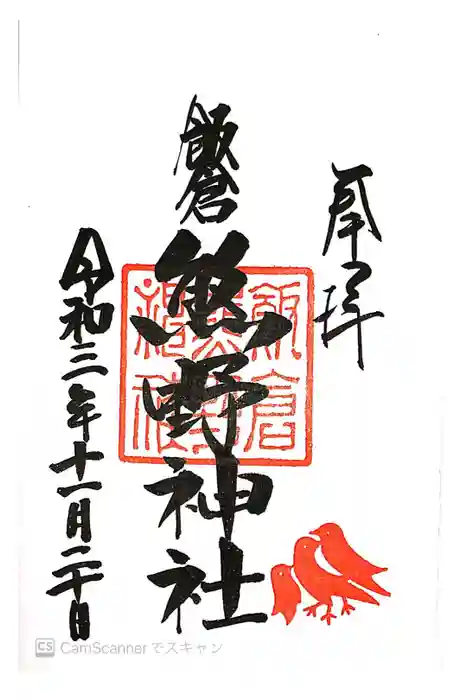 奉拝
飯倉
熊野神社
令和三年十一月二十日
CS CamScanner でスキャン